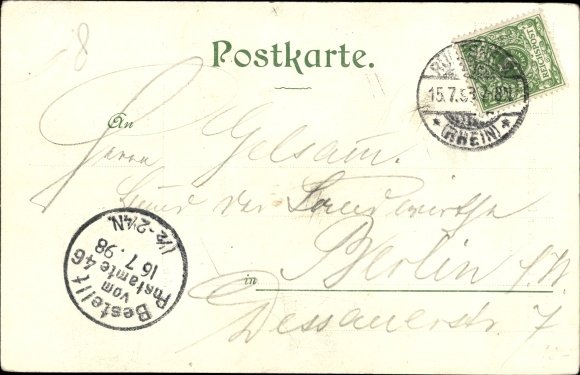 18
Postkarte.
REICHSPOST
15.7.98
* (RHEIN) *
An
Herrn Gelsam.
Bund der Landwirthe
in Berlin S.W.
Dessauerstr. 7
Bestellt
vom
Postamte 46
16 7. 98
1/2-2 1/4 N.